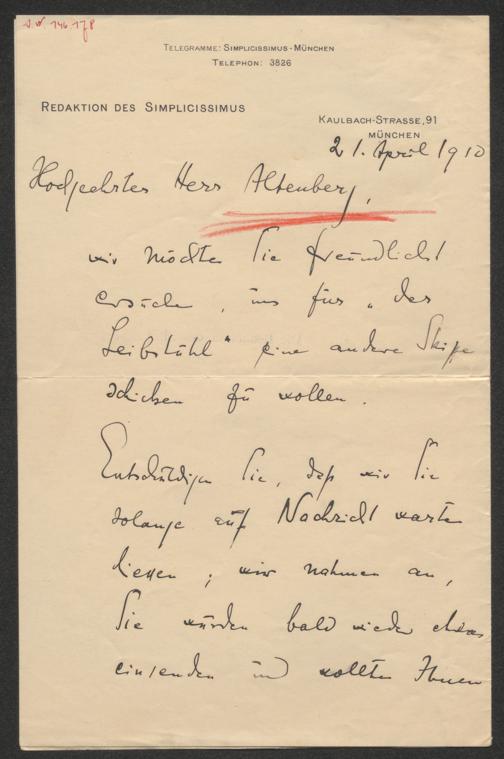 TELEGRAMME: SIMPLICISSIMUS-MÜNCHEN
TELEPHON: 3826
REDAKTION DES SIMPLICISSIMUS
KAULBACH-STRASSE, 91
MÜNCHEN
21. April 1910
Hochgeehrter Herr Altenberg,
wir möchten Sie freundlichst
ersuchen, uns für „der
Leibstuhl" eine andere Skizze
schicken zu wollen.
Entschuldigen Sie, daß wir Sie
solange auf Nachricht warten
liessen; wir nahmen an,
Sie würden bald wieder etwas
einsenden und wollten Ihnen